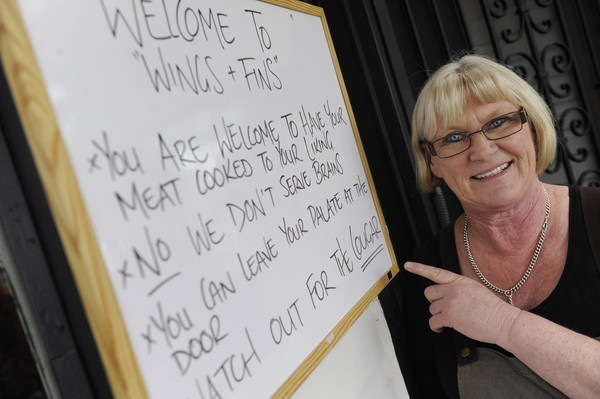 WELCOME TO
"WINGS + FINS"
xYOU ARE WELCOME TO HAVE YOUR
MEAT COOKED TO YOUR LIKING
xNO WE DON'T SERVE BRAINS
xYOU CAN LEAVE YOUR PALATE AT THE
DOOR
WATCH OUT FOR THE COUGAR